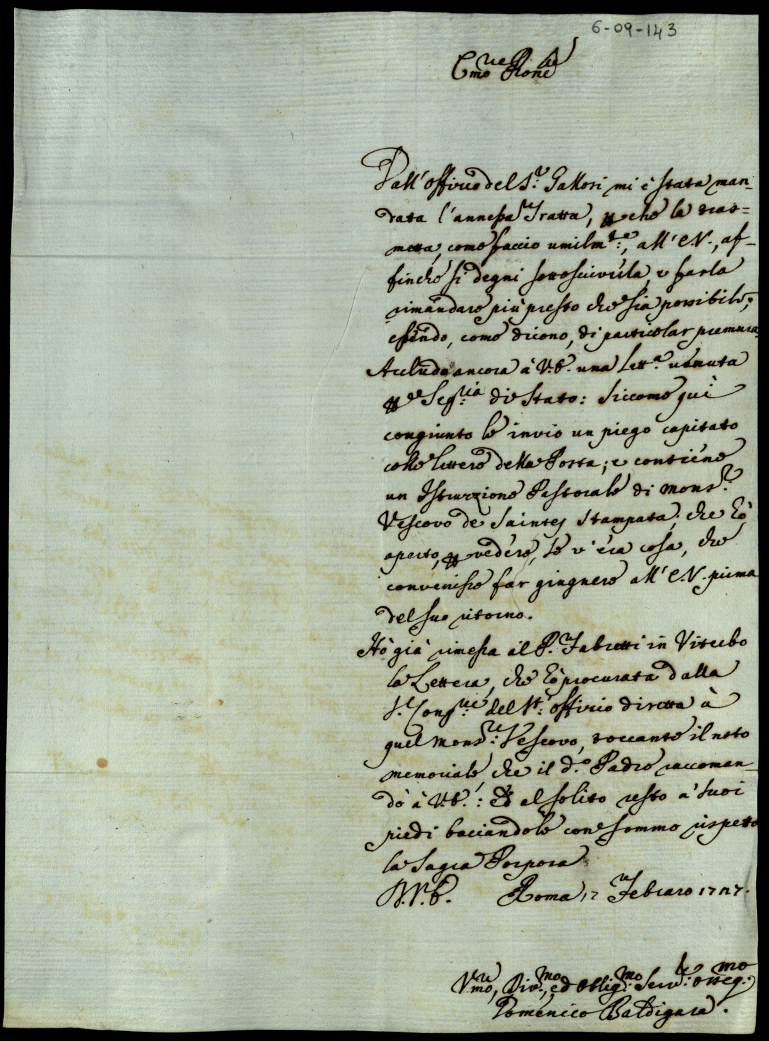 6-09-143
E.mo Pr̃one
Dall'offizio del S.r Gattori mi è stata man-
data l'annessa Tratta, perche la tras=
metta, come faccio umilm.te, all'E.V., af-
finche si degni sottoscriverla, e farla
rimandare più presto che sia possibile,
essendo, come dicono, di particolar premura.
Accludo ancora à V.E. una lett.a venuta
per Seg.ria di Stato: siccome quì
congiunto le invio un piego capitato
colle lettere della Posta; e contiene
un Istruzione Pastorale di Mons.r
Vescovo de Saintes stampata; che hò
aperto, per vedere, se v'era cosa, che
convenisse far giugnere all'E.V. prima
del suo ritorno.
Hò già rimessa al P. Fabretti in Viterbo
la Lettera, che hò procurata dalla
S. Cong.ne del St. offizio diretta à
quel Mons.r Vescovo, toccante il noto
memoriale che il d.o Padre raccoman-
dò à V.E.: Ed al solito resto a' suoi
piedi baciandole con sommo rispetto
la Sagra Porpora
D.V.E. Roma 12 Febraro 1727.
V.mo, Div.mo, ed obblig.mo Serv.re osseq.mo
Domenico Baldigara.